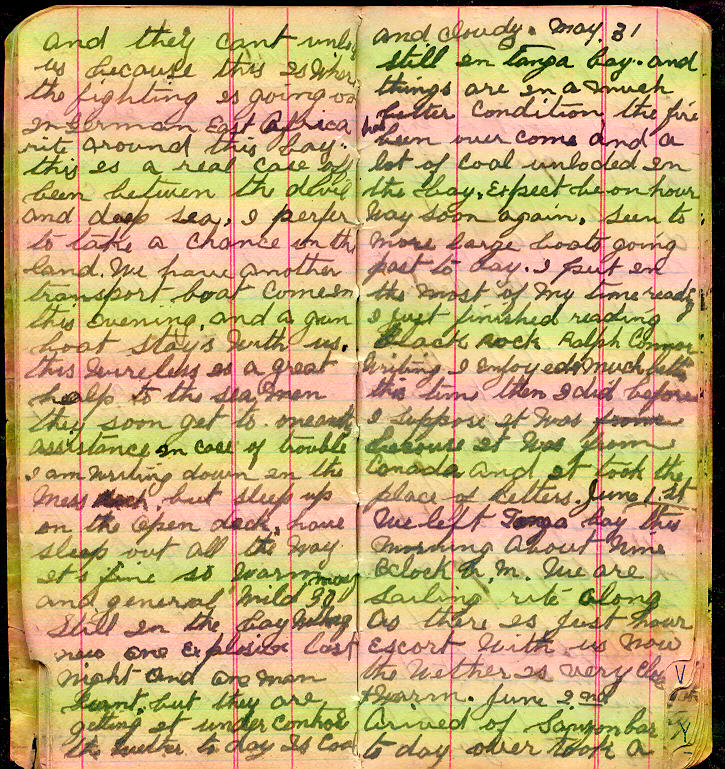 and they cant unlo
us because this is wher
the fighting is going on
in German East Africa
rite around this bay.
this is a real case of
been between the devil
and deep sea, I perfer
to take a chance in the
land. We have another
transport boat come in
this evening, and a gun
boat stay's with us.
this wireless is a great
help to the sea men
they soon get to one
assistance in case of trouble
I am writing down in the
mess deck, but sleep up
on the open deck, have
sleep out all the way
it's fine so warm
and general mild 30 may
Still in the bay nothing
new one explosion last
night and one man
burnt, but they are
getting it under control
the wether to day is cool
and cloudy. May. 31
still in tanga bay. and
things are in a much
better condition the fire
has been over come and a
lot of coal unloded in
the bay. Expect be on hour
way soon again. seen to
more large boats going
past to day. I put in
the most of my time reading
I just finished reading
Black rock Ralph Connor
writing I enjoyed much bett
this time then I did before
I suppose it was from
because it was from
Canada and it took the
place of letters. June 1.st
We left Tonga bay this
morning about nine
Oclock A.M. We are
sailing rite along
As there is just hour
escort with us now
the wether is very
warm. June 2nd
Arived of Sansonbar
to day over took a
V
Y